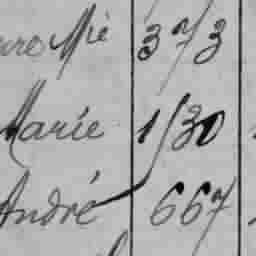 Mie 373
Marie 1530
André 667